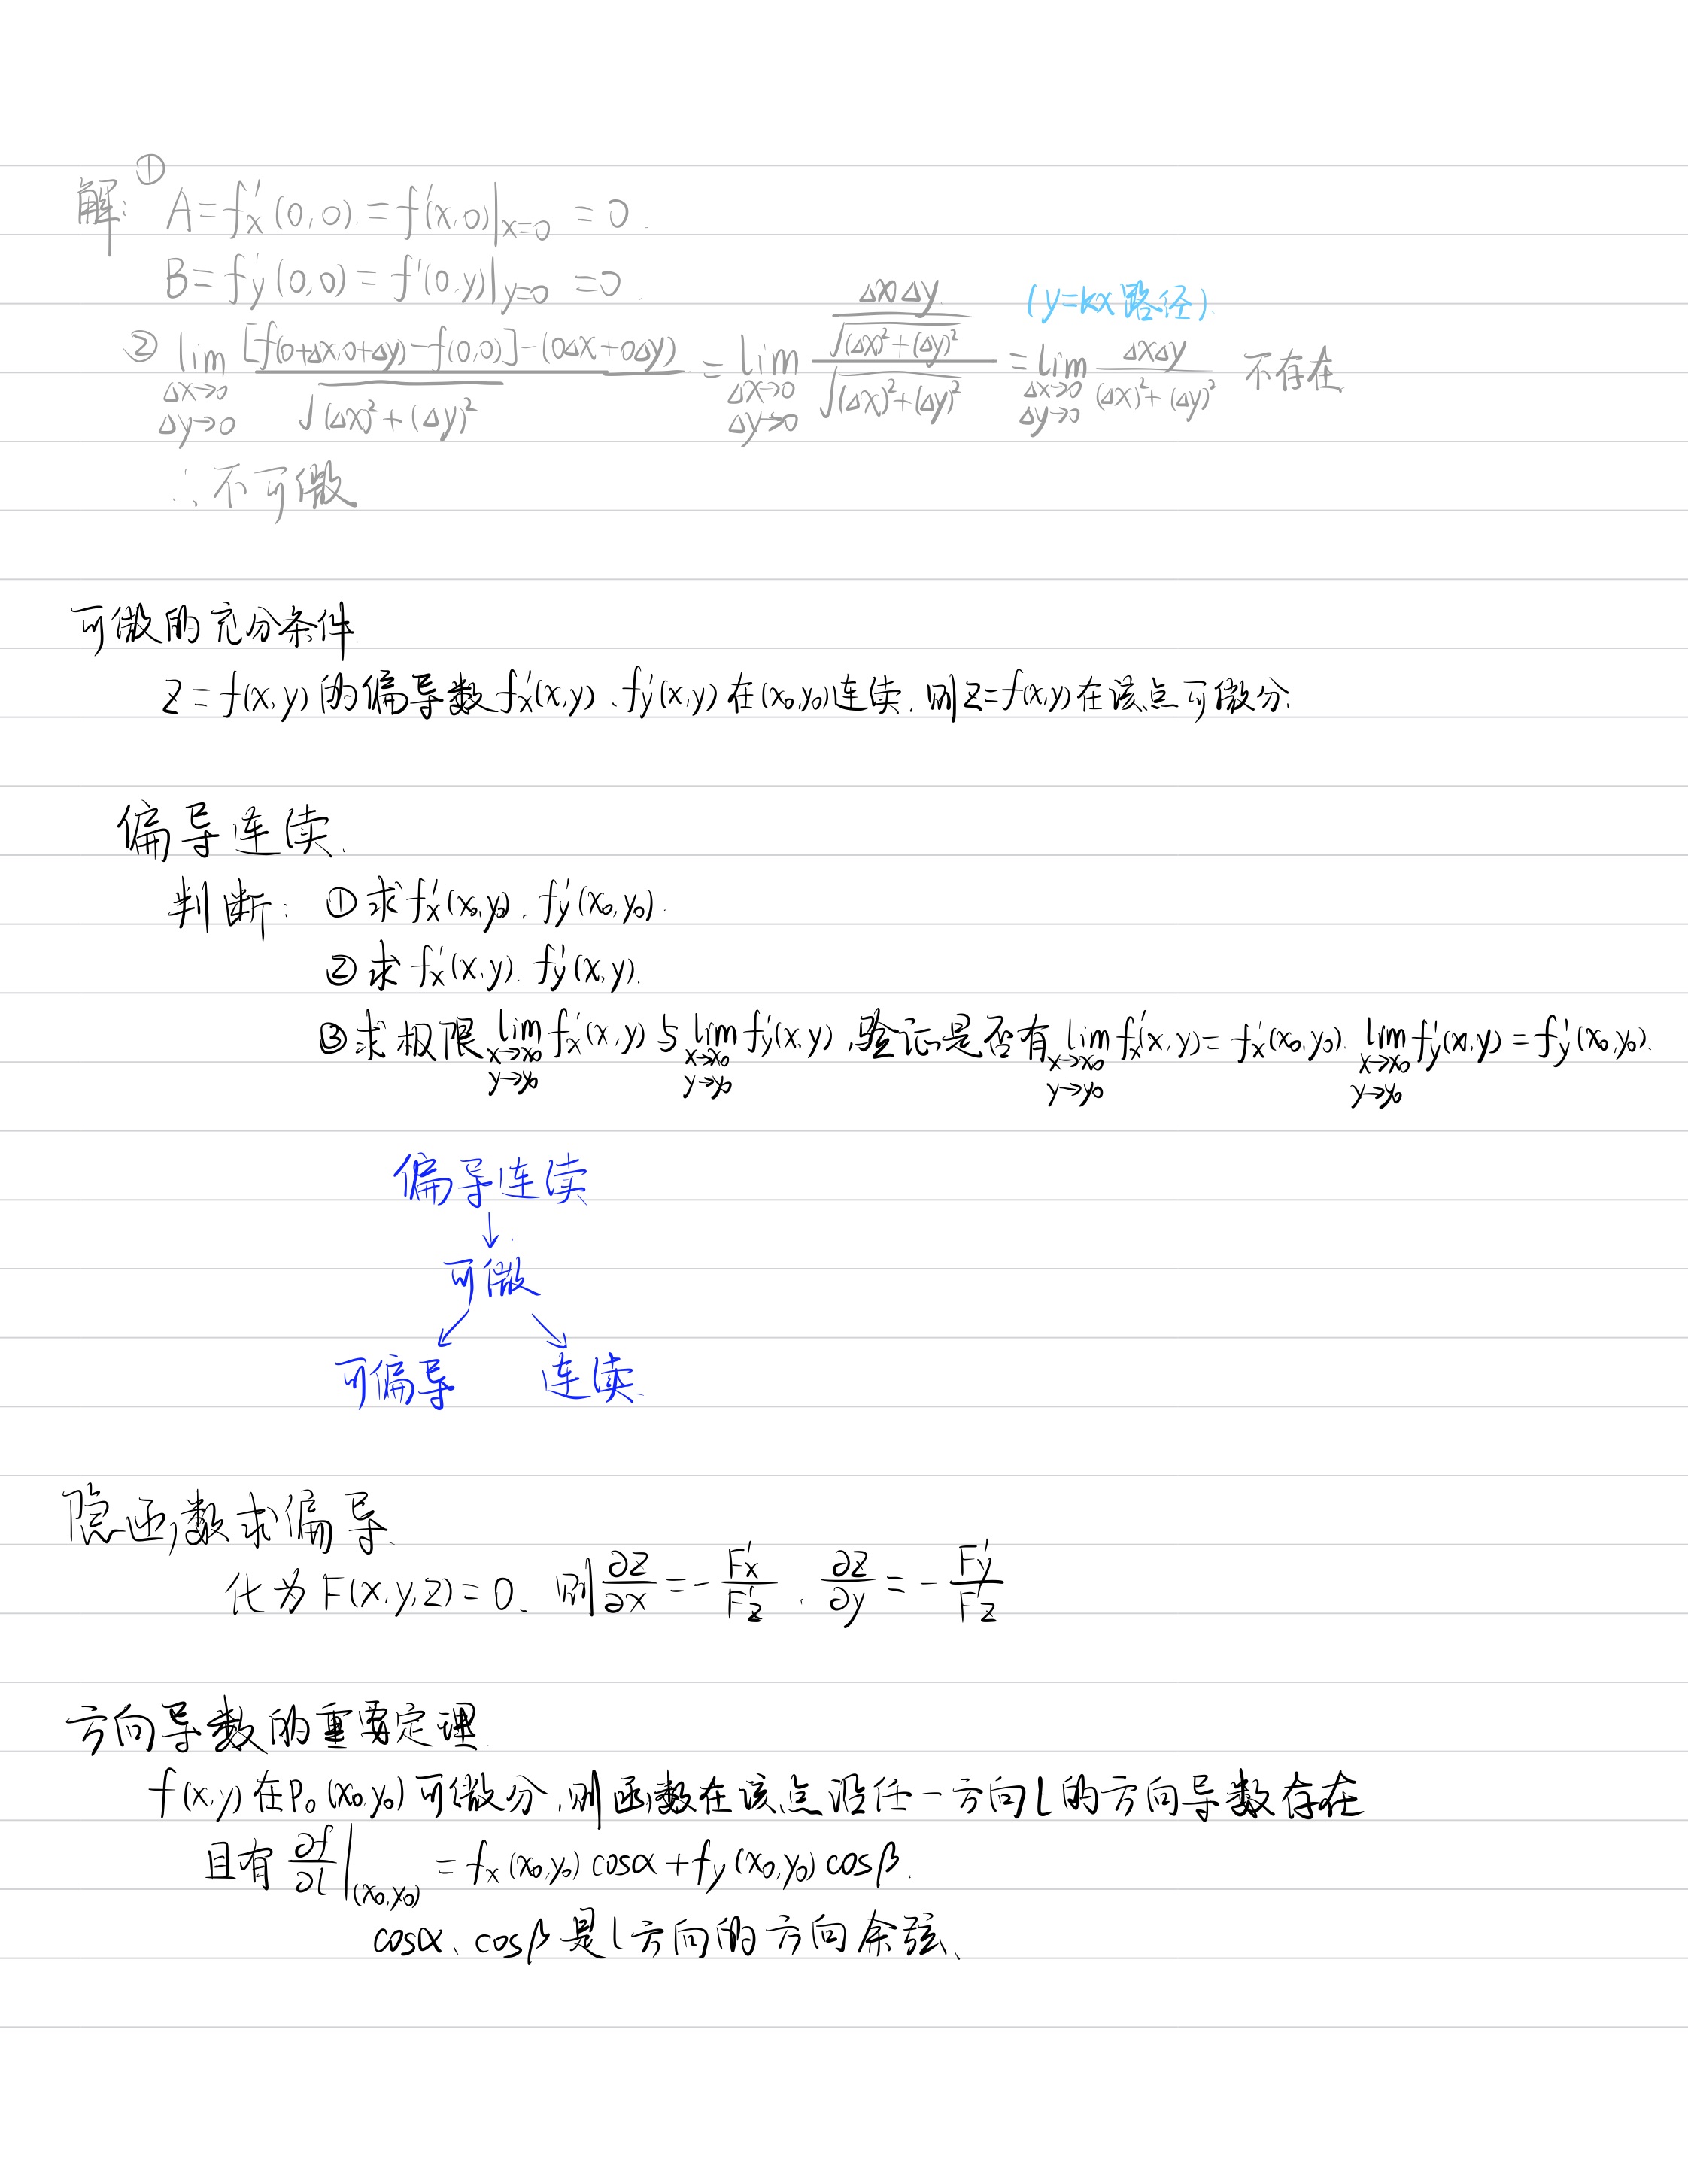 解: ① A=f'x(0,0)=f'(x,0)|x=0 =0.
B=f'y(0,0)=f'(0,y)|y=0 =0.
② lim Δx→0 Δy→0 [f(0+Δx,0+Δy)-f(0,0)]-(0Δx+0Δy) / √(Δx)²+(Δy)² = lim Δx→0 Δy→0 (ΔxΔy / √(Δx)²+(Δy)²) / √(Δx)²+(Δy)² = lim Δx→0 Δy→0 ΔxΔy / (Δx)²+(Δy)² 不存在
(y=kx路径).
∴不可微
可微的充分条件.
z=f(x,y)的偏导数f'x(x,y)、f'y(x,y)在(x₀,y₀)连续,则z=f(x,y)在该点可微分.
偏导连续.
判断: ①求f'x(x₀,y₀). f'y(x₀,y₀).
②求f'x(x,y). f'y(x,y).
③求极限 lim x→x₀ y→y₀ f'x(x,y)与 lim x→x₀ y→y₀ f'y(x,y),验证是否有 lim x→x₀ y→y₀ f'x(x,y)=f'x(x₀,y₀). lim x→x₀ y→y₀ f'y(x,y)=f'y(x₀,y₀).
偏导连续
↓
可微
↙ ↘
可偏导 连续.
隐函数求偏导.
化为F(x,y,z)=0、则 ∂z/∂x=-F'x/F'z . ∂z/∂y=-F'y/F'z
方向导数的重要定理.
f(x,y)在P₀(x₀,y₀)可微分,则函数在该点沿任一方向l的方向导数存在
且有 ∂f/∂l|(x₀,y₀) =fx(x₀,y₀)cosα+fy(x₀,y₀)cosβ.
cosα、cosβ是l方向的方向余弦、